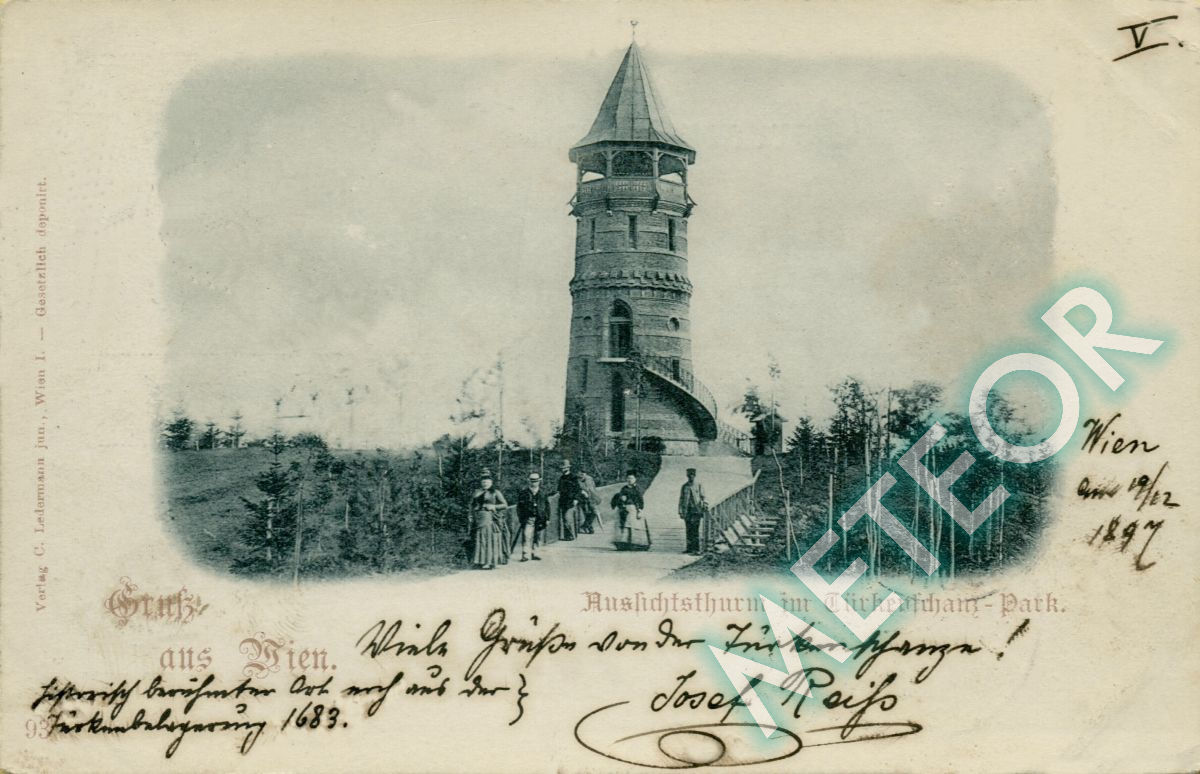 V.
Verlag C. Ledermann jun., Wien I. — Gesetzlich deponirt.
METEOR
Wien
am 19/12
1897
Gruß
aus Wien.
Aussichtsthurm im Türkenschanz-Park.
Viele Grüße von der Türkenschanze!
historisch berühmter Ort aus der
Türkenbelagerung 1683.
Josef Reiß